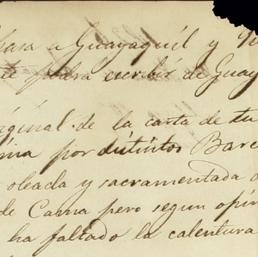 pasara a Guayaquil y
te podra escribir de Guay
iginal de la carta de tu
por distintos Barc
oleada y sacramentada
de Cama pero segun opin
ha faltado la calentura